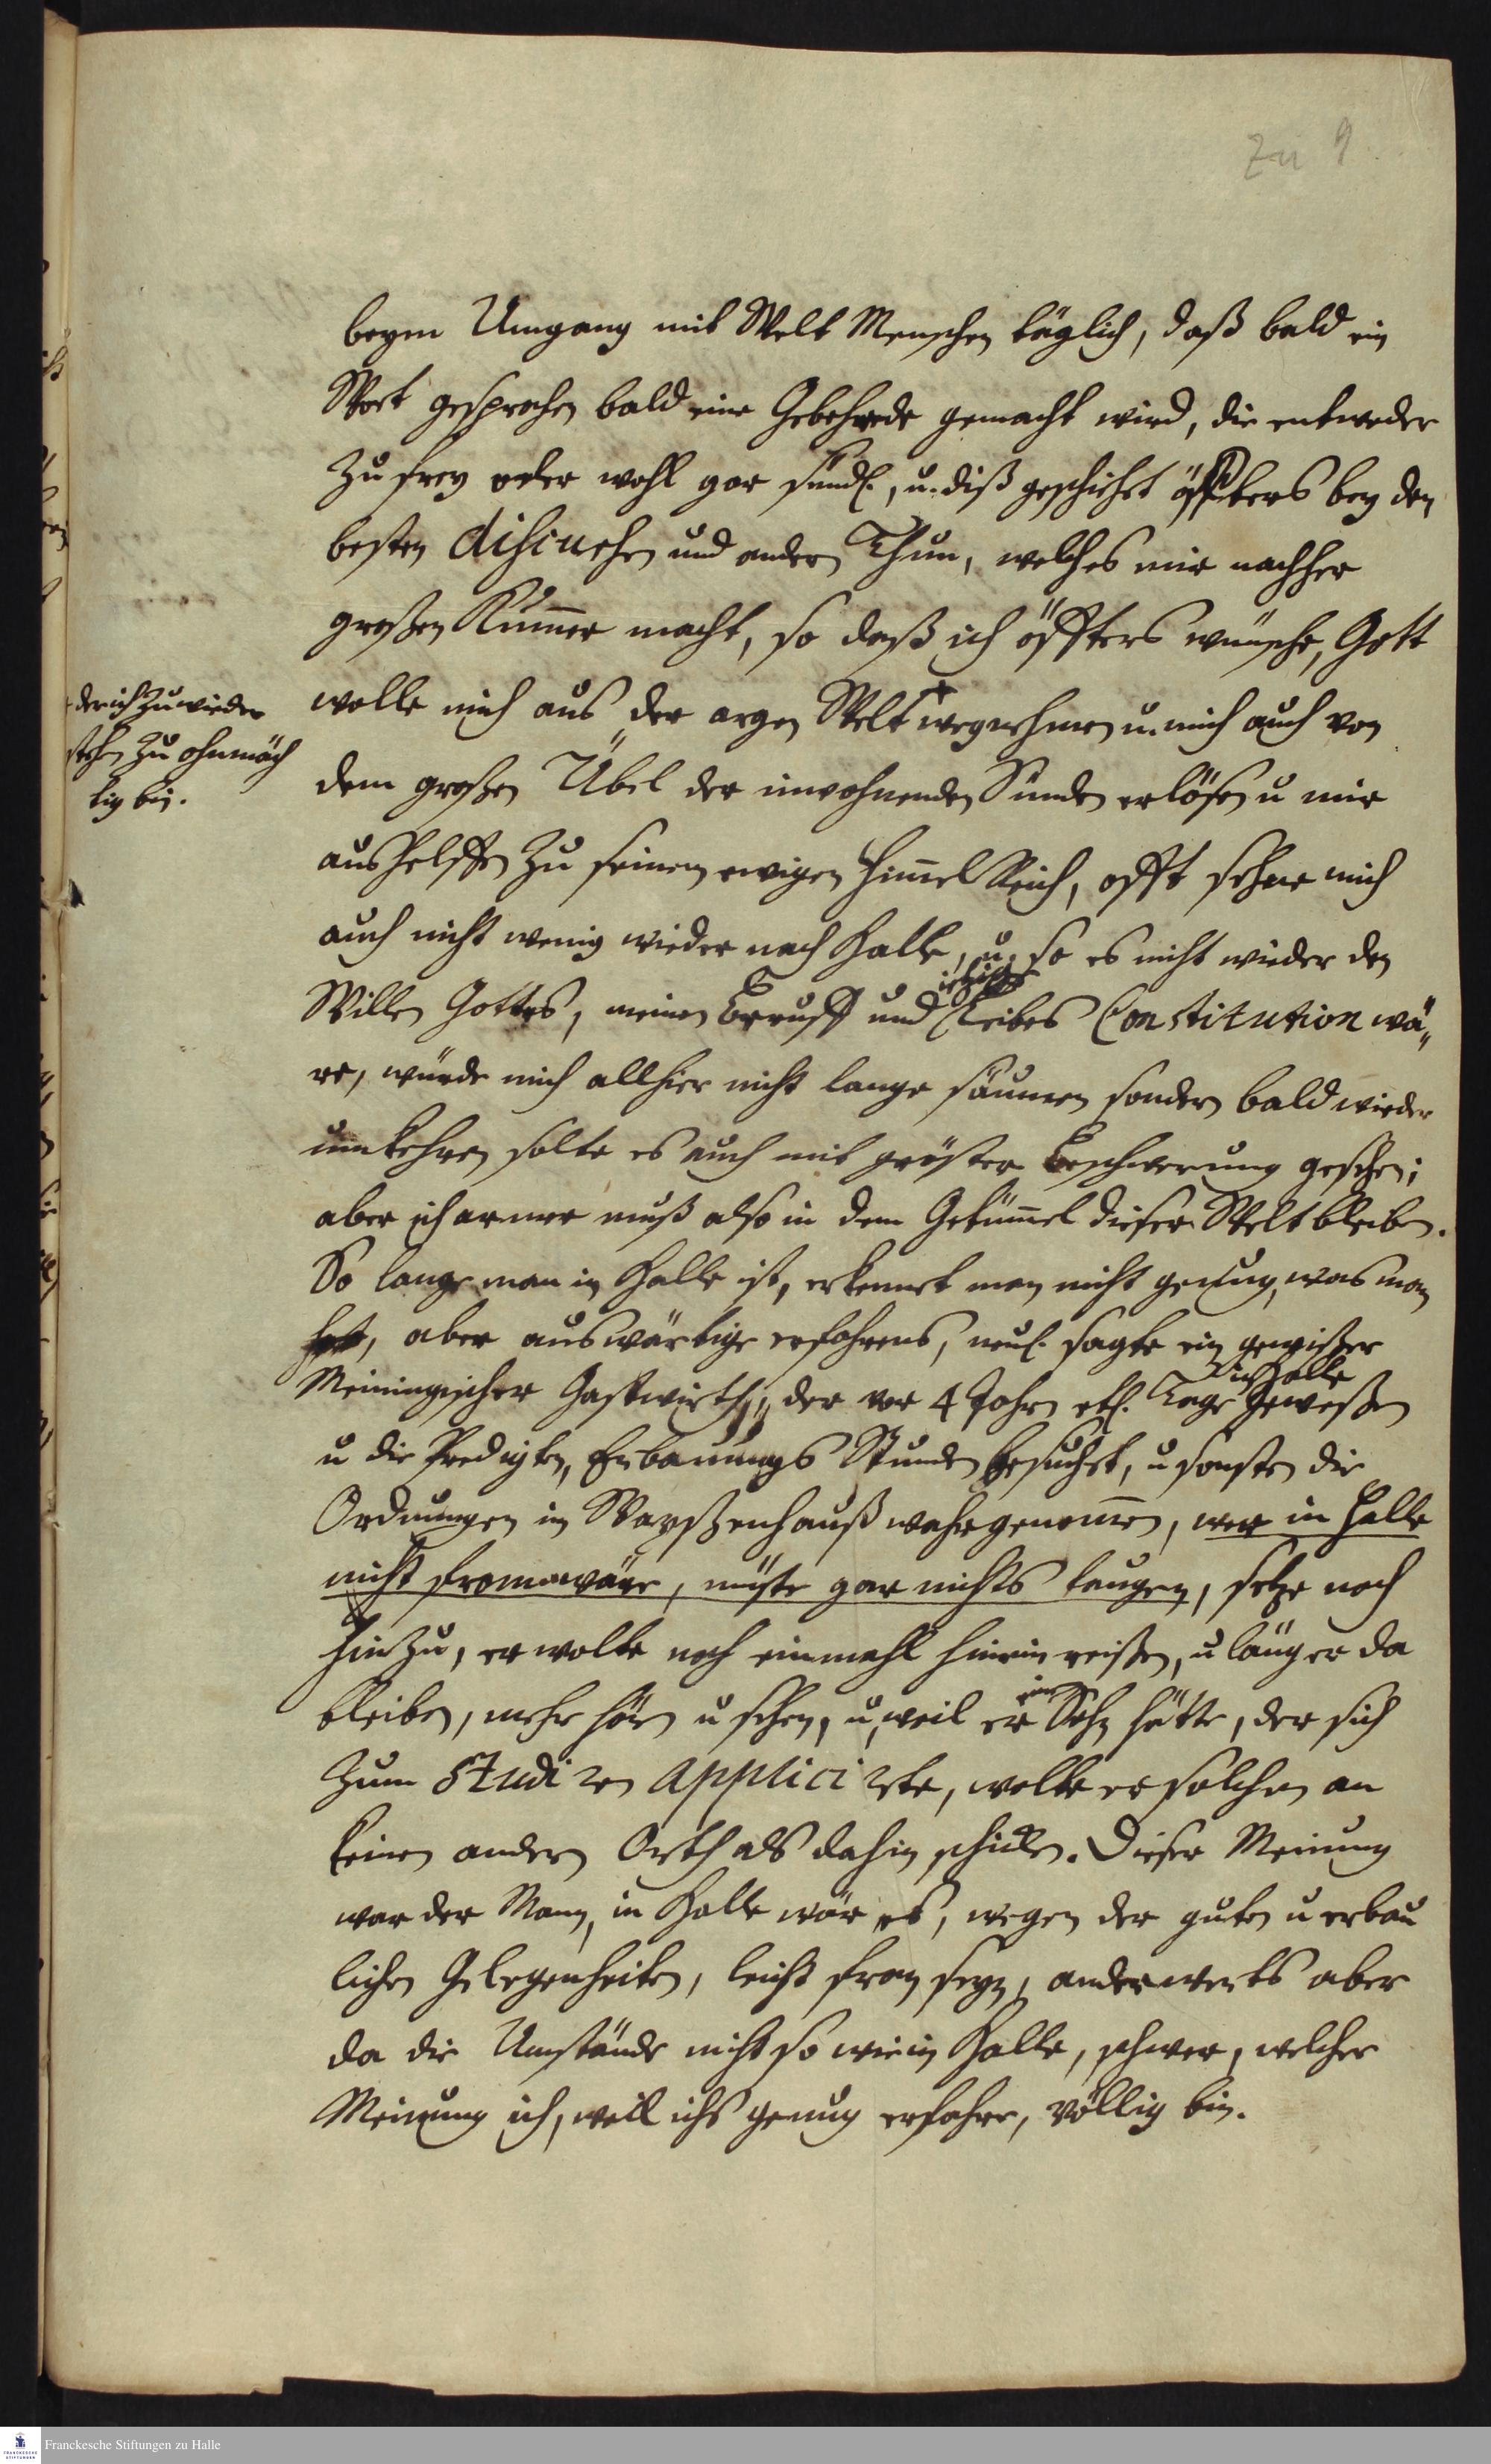 zu 9
beym Umgang mit Welt Menschen täglich, daß bald ein
Wort gesprochen bald eine Gebehrede gemacht wird, die entweder
zu frey oder wohl gar sündl., u. diß geschiehet öffters bey den
besten discursen und andern Thun, welches mir nachher
großen Kum̄er macht, so daß ich öffters wünsche, Gott
wolle mich aus der argen Welt + wegnehmen u. mich auch von
der ich zu wieder
stehen zu ohnmäch
tig bin.
dem großen Übel der inwohnenden Sünden erlösen u mir
aushelffen zu seinem ewigen Him̄el Reich, offt sehne mich
auch nicht wenig wieder nach Halle, u. so es nicht wieder den
Willen Gottes, meinen Beruff und jetzige Leibes Constitution wä„
re, würde mich allhier nicht lange säumen sondern bald wieder
umkehren solte es auch mit gröster Beschwerung geschehen;
aber ich armer muß also in dem Getüm̄el dieser Welt bleiben.
So lange man in Halle ist, erkennet man nicht genug, was man
hat, aber auswärtige erfahrens, neul. sagte ein gewißer
Meiningischer Gastwirth, der vor 4 Jahren etl. Tage in Halle geweßen
u die Predigten, Erbauungs Stunden besuchet, u sonsten die
Ordnungen im Wayßenhauß wahrgenom̄en, wer in Halle
nicht from wäre, müste gar nichts taugen, setze noch
hinzu, er wolte noch einmahl hinein reißen, u länger da
bleiben, mehr hören u sehen, u, weil er ein Sohn hätte, der sich
zum studiren applicirte, wolte er solchen an
keinen andern Orth als dahin schicken. Dieser Meinung
war der Mann, in Halle wär es, wegen der guten u erbau
lichen Gelegenheiten, leicht from seyn, anderwerts aber
da die Umstände nicht so wie in Halle, schwer, welcher
Meinung ich, weil ichs genug erfahre, völlig bin.
Franckesche Stiftungen zu Halle